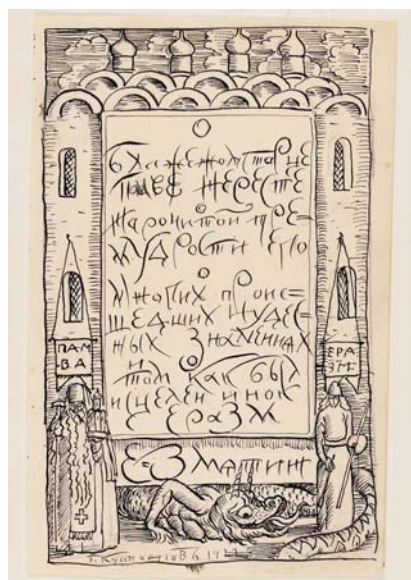 О
блаженом старце
Памве Нересте
о
нарочитой пре-
мудрости его
о
многих проис=
шедших чудес-
ных знамениях
и о
том как был
исцелен инок
Еразм
ПАМ-
ВА
ЕРА-
ЗМ
Е. Замятин
Б. Кустодиев